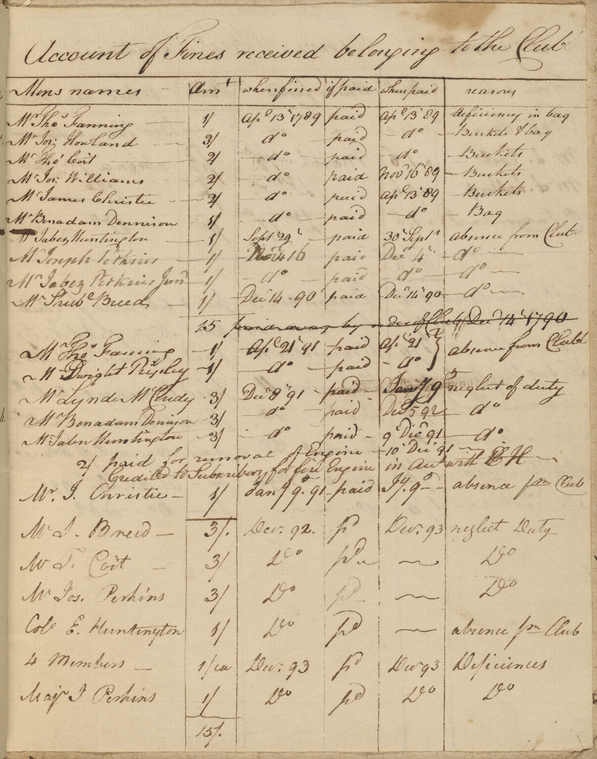 Account of Fines received belonging to the Club
Mens names Amt when fined if paid when paid reasons
Mr Thos Fanning 1/ Apl 13th 1789 paid Apl 13th 89 deficiency in bag
Mr Jos: Howland 3/ do paid do Buckets & bag
Mr Thos Coit 2/ do paid do Buckets
Mr Jos: Williams 2/ do paid Novr 16th 89 Buckets
Mr James Christie 2/ do paid Apl 13th 89 Buckets
Mr Benadam Dennison 1/ do paid do Bag
Mr Jabez Huntington 1/ Sept 29th paid 30th Sept absence from Club
Mr Joseph Perkins 1/ Novr 16 paid Decr 4th do
Mr Jabez Perkins Junr 1/ do paid do do
Mr Shubl Breed 1/ Decr 14 - 90 paid Decr 14th 90 do
15 paid away by order of Club Decr 14th 1790
Mr Thos Fanning 1/ Apl 21st 91 paid Apl 21st absence from Club
Mr Dwight Ripley 1/ do paid do
Mr Lynde McCurdy 3/ Decr 8th 91 paid neglect of duty
Mr Benadam Denison 3/ do paid Decr 5 92 do
Mr Jabez Huntington 3/ do paid 9 Decr 91 do
9/ paid for removal of Engine 10 Decr 91
Credited to Subscribers for fire Engine in acct with EH
Mr J. Christie 1/ Jany 9th 91 paid Jy. 9 absence fm Club
Mr S. Breed 3/. Decr. 92. pd Decr. 93 neglect Duty
Mr T. Coit 3/ Do pd Do
Mr Jos. Perkins 3/ Do pd Do
Colo E. Huntington 1/ Do pd absence fm Club
4 Members 1/ea Decr. 93 pd Decr 93 Deficiences
Majr J Perkins 1/ Do pd Do Do
15/.